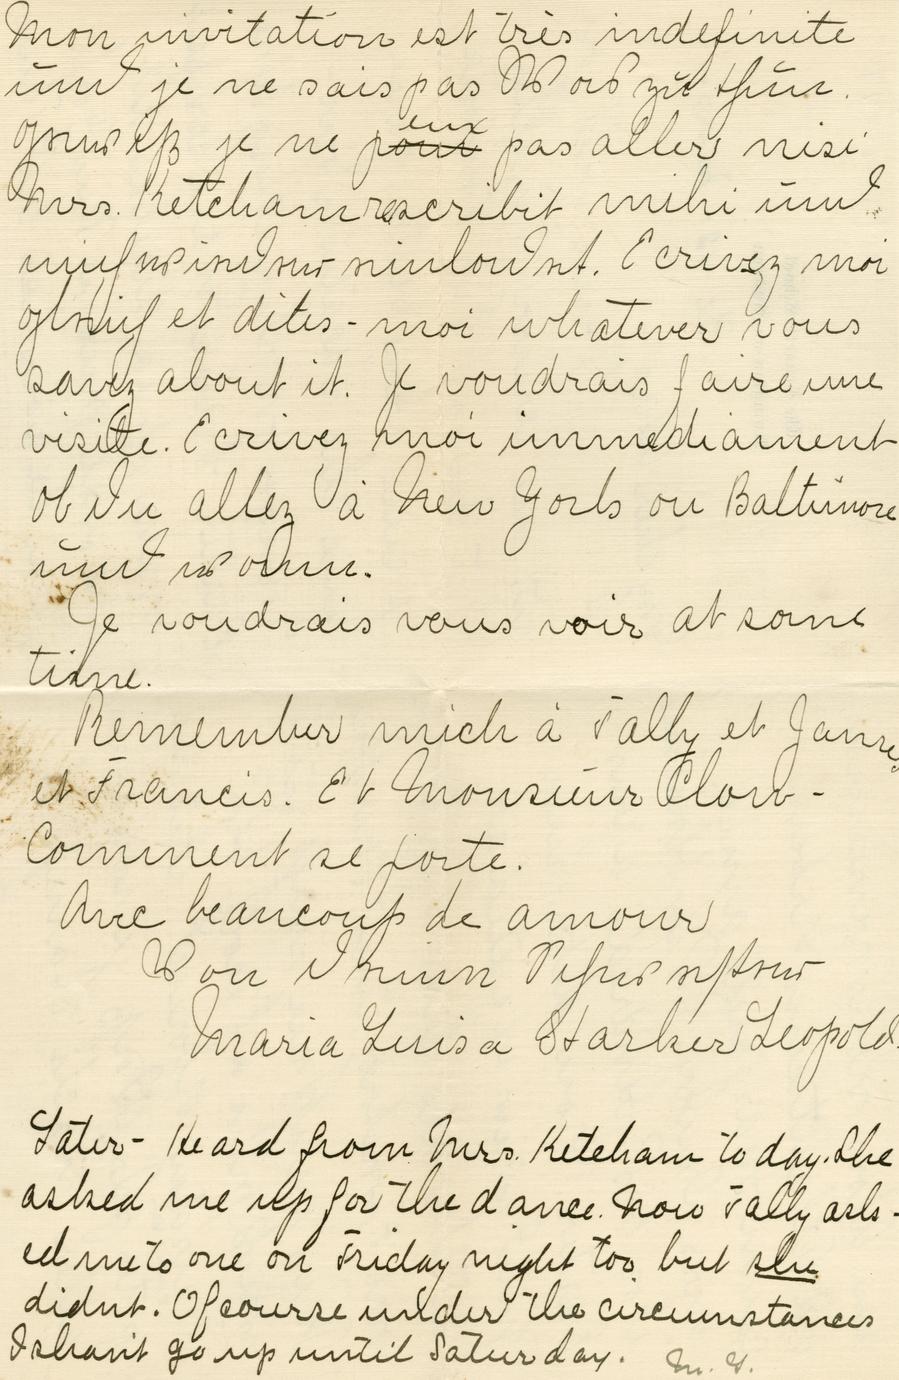 Mon invitation est très indefinite
und je ne sais pas Was zu thun.
Gewiß je ne pout eux pas aller nisi
Mrs. Ketcham rescribit mihi und
mich wieder einladet. Ecrivez moi
gleich et dites-moi whatever vous
savez about it. Je voudrais faire une
visite. Ecrivez moi immediament
ob du allez à New York ou Baltimore
und wann.
Je voudrais vous voir at some
time.
Remember mich à Tally et James
et Francis. Et Monsieur Clow-
Comment se porte.
Avec beaucoup de amour
Von Deiner Schwester
Maria Luisa Starker Leopold.
Later- Heard from Mrs. Ketcham today. She
asked me up for the dance. Now Tally ask-
ed me to one on Friday night too but she
didnt. Of course under the circumstances
I shan't go up until Saturday. M. L.